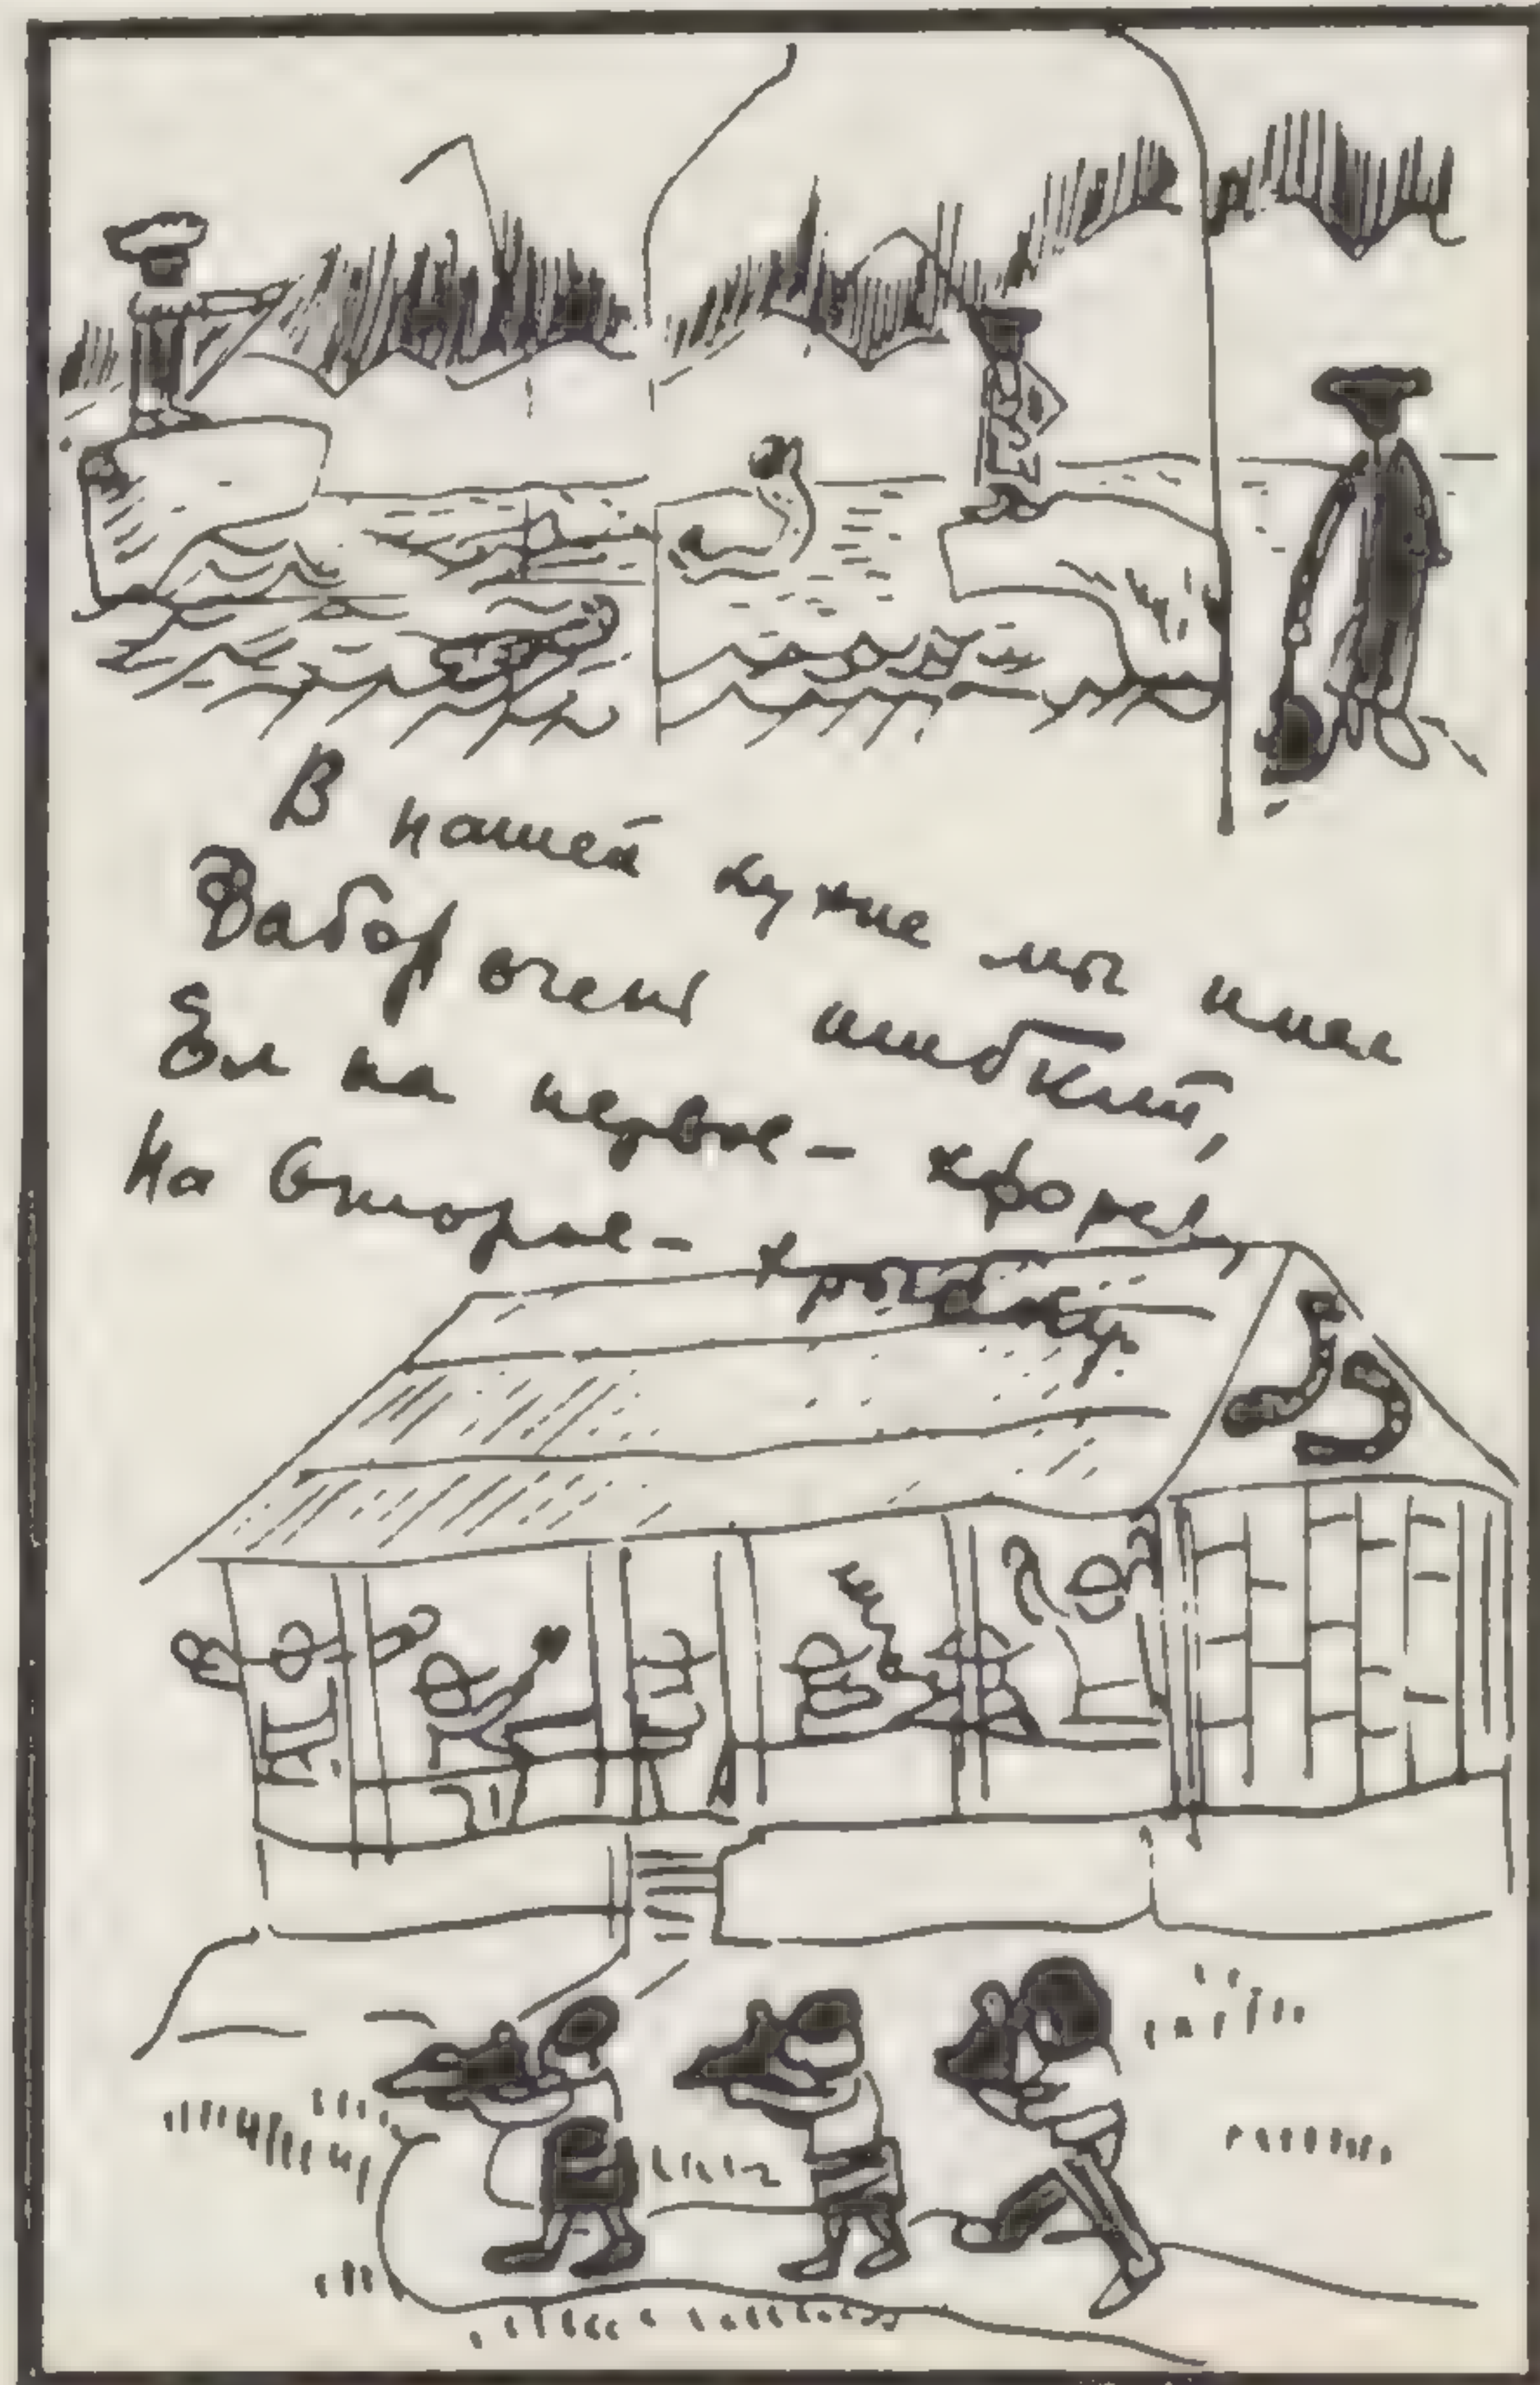 В нашей кухне мы имел
Забор очень шибкий,
Ел на первое - хфорел,
На второе - хрыбку.